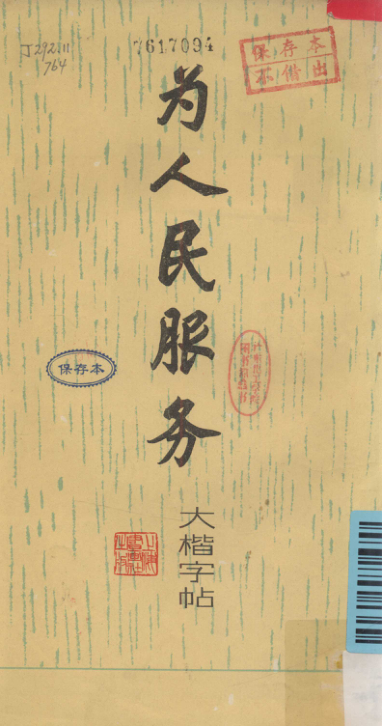 J292.11
764
7617094
保存本
不借出
为人民服务
保存本
大楷字帖